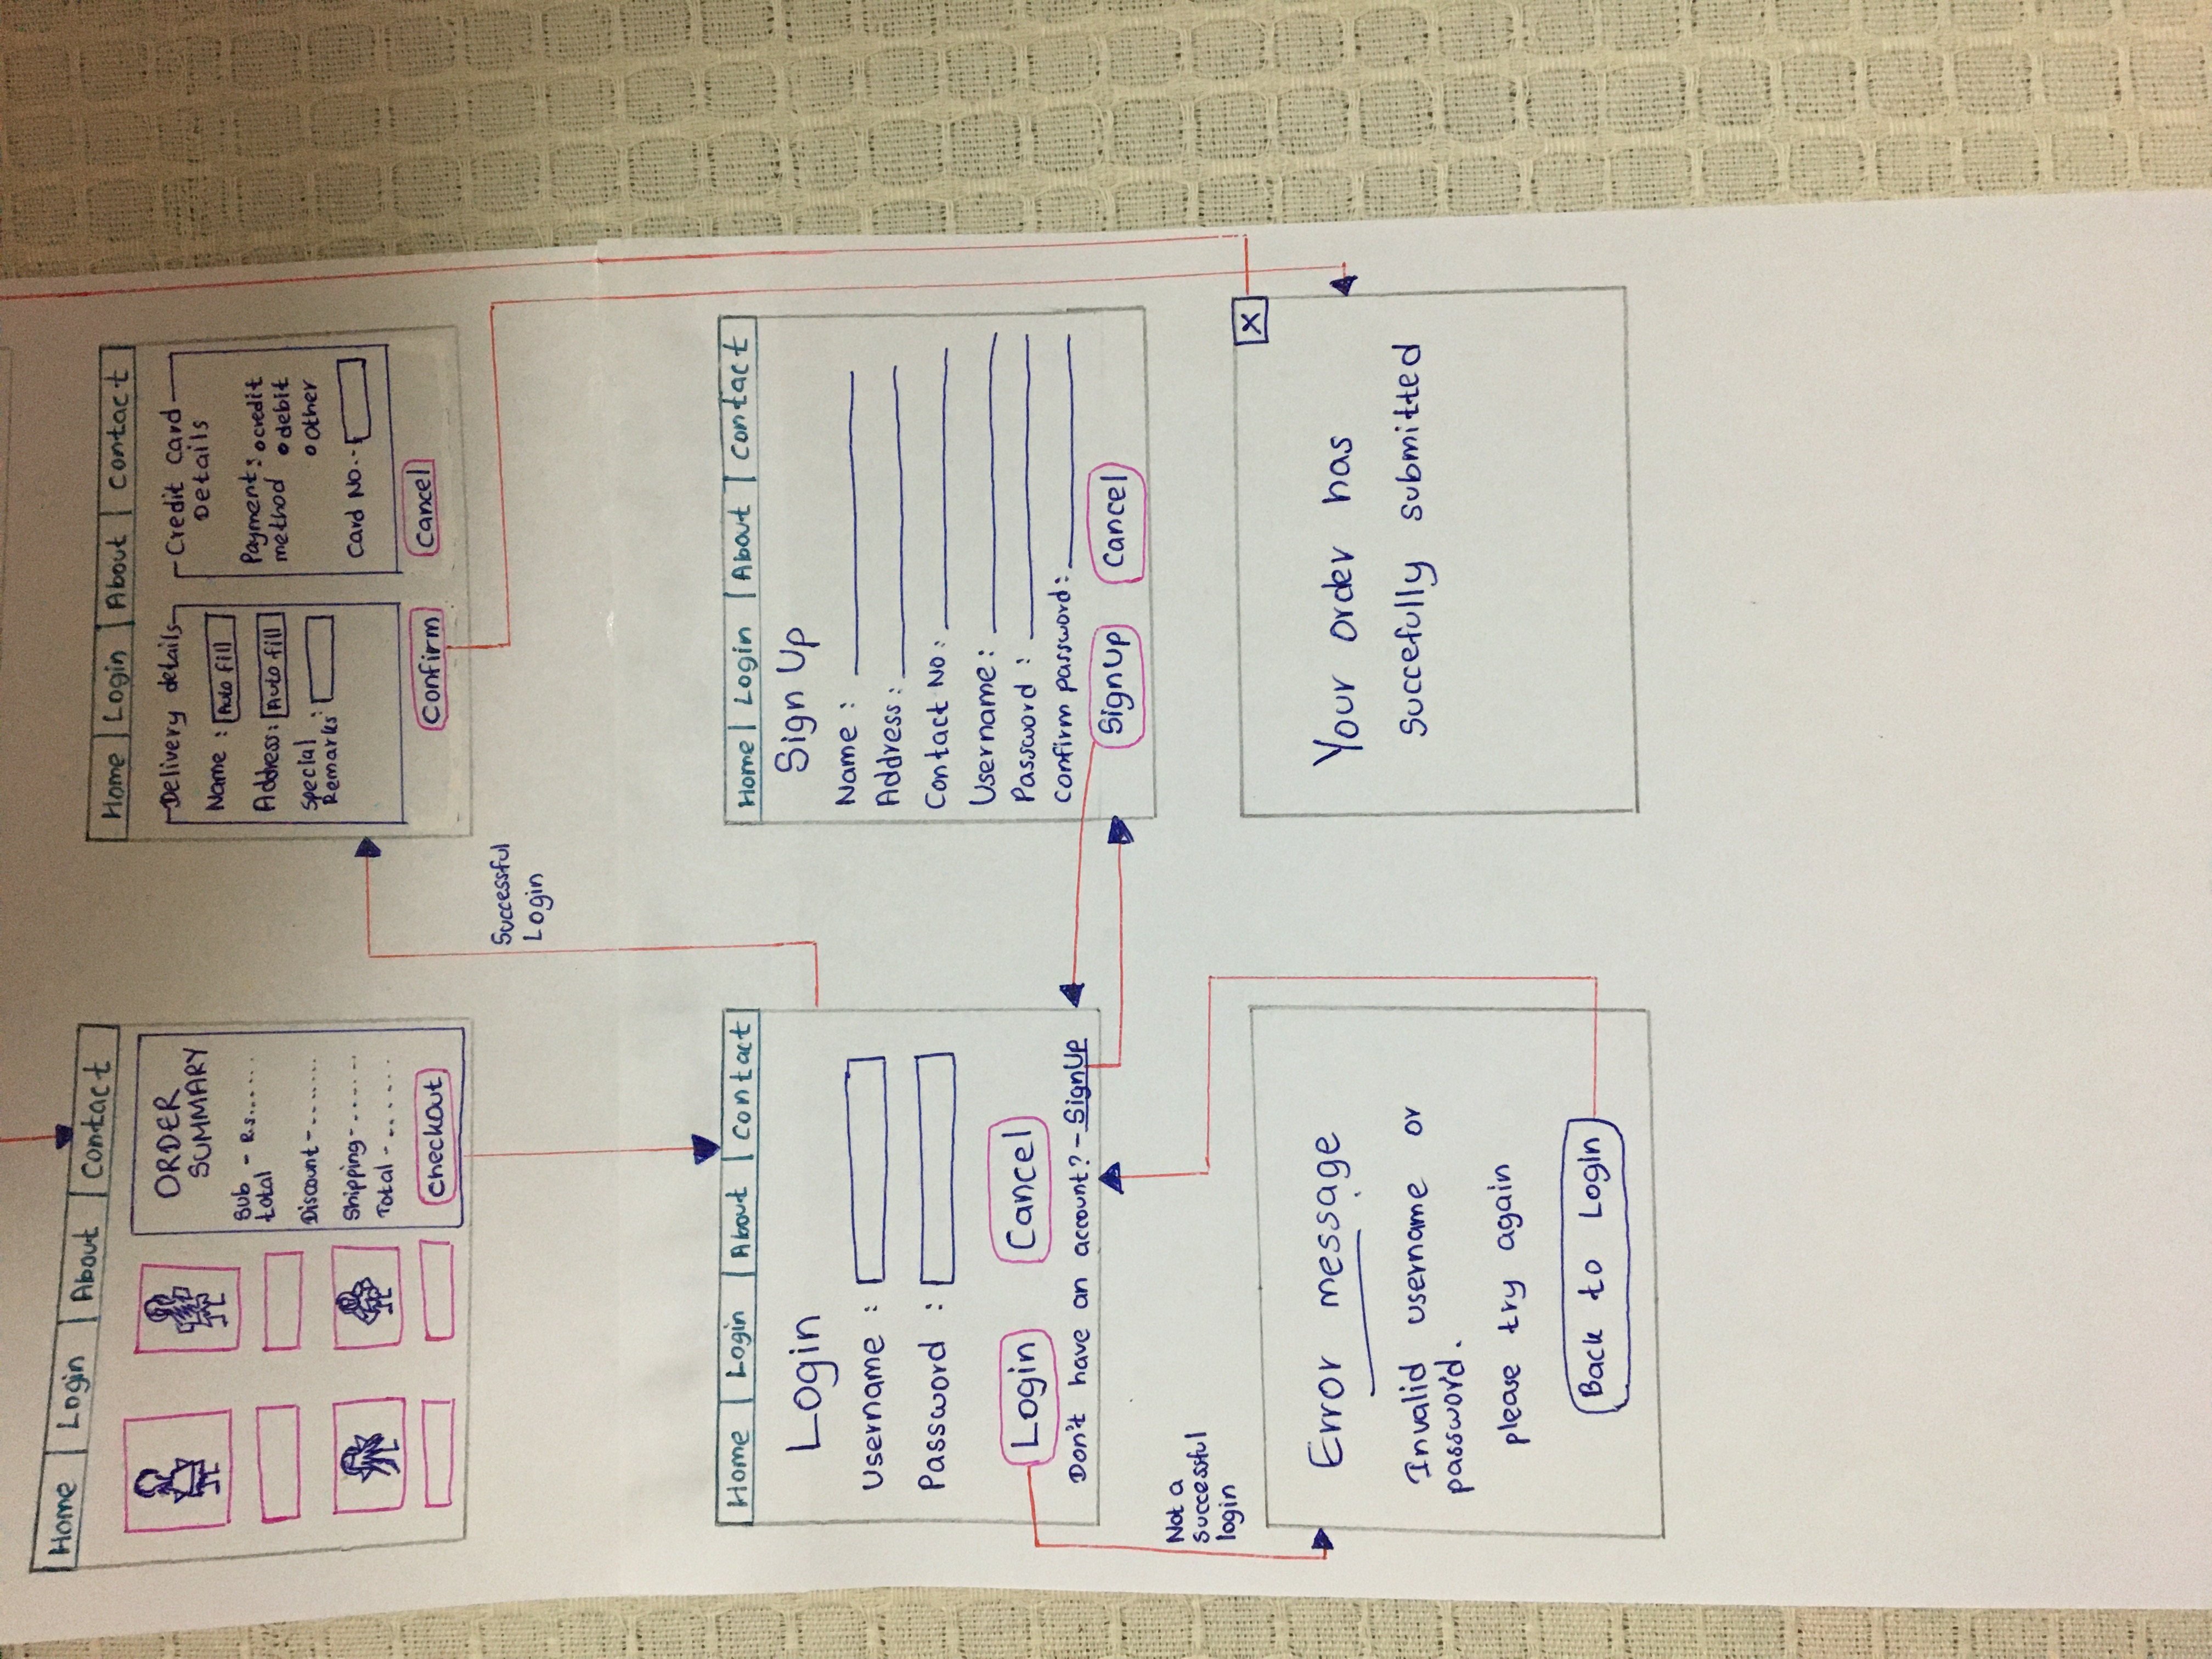 Home Login About Contact
ORDER
SUMMARY
Sub - Rs.......
total
Discount - .......
Shipping - .......
Total - .......
CheckOut
Home Login About Contact
Delivery details
Name : Auto fill
Address: Auto fill
Special :
Remarks
Credit Card
Details
Payment : credit
method debit
other
Card No.-
Confirm Cancel
Successful
Login
Home Login About Contact
Login
Username :
Password :
Login Cancel
Don't have an account? - SignUp
Home Login About Contact
Sign Up
Name :
Address :
Contact No :
Username :
Password :
Confirm password :
SignUp Cancel
Not a
successful
login
Error message
Invalid username or
password.
please try again
Back to Login
X
Your order has
succefully submitted